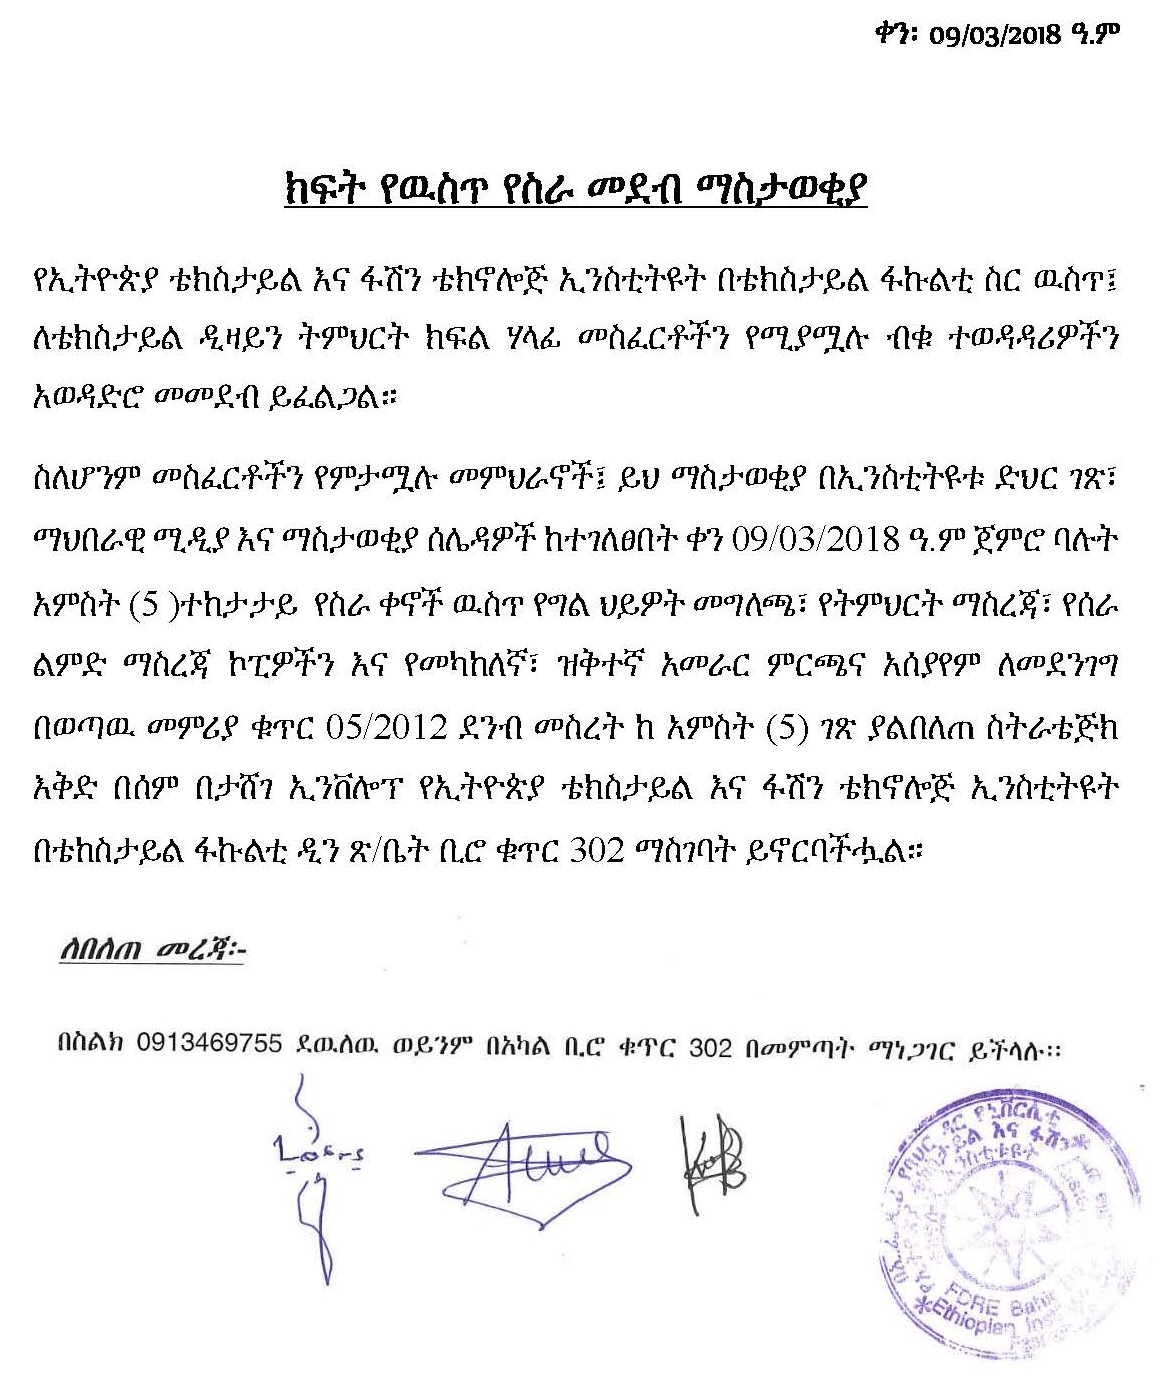 ቀን፡ 09/03/2018 ዓ.ም
ክፍት የዉስጥ የስራ መደብ ማስታወቂያ
የኢትዮጵያ ቴክስታይል እና ፋሽን ቴክኖሎጅ ኢንስቲትዩት በቴክስታይል ፋኩልቲ ስር ዉስጥ፤
ለቴክስታይል ዲዛይን ትምህርት ክፍል ሃላፊ መስፈርቶችን የሚያሟሉ ብቁ ተወዳዳሪዎችን
አወዳድሮ መመደብ ይፈልጋል።
ስለሆንም መስፈርቶችን የምታሟሉ መምህራኖች፤ ይህ ማስታወቂያ በኢንስቲትዩቱ ድህር ገጽ፣
ማህበራዊ ሚዲያ እና ማስታወቂያ ሰሌዳዎች ከተገለፀበት ቀን 09/03/2018 ዓ.ም ጀምሮ ባሉት
አምስት (5 )ተከታታይ የስራ ቀኖች ዉስጥ የግል ህይዎት መግለጫ፣ የትምህርት ማስረጃ፣ የሰራ
ልምድ ማስረጃ ኮፒዎችን እና የመካከለኛ፣ ዝቅተኛ አመራር ምርጫና አሰያየም ለመደንገግ
በወጣዉ መምሪያ ቁጥር 05/2012 ደንብ መስረት ከ አምስት (5) ገጽ ያልበለጠ ስትራቴጅክ
እቅድ በሰም በታሸገ ኢንቨሎፕ የኢትዮጵያ ቴክስታይል እና ፋሽን ቴክኖሎጅ ኢንስቲትዩት
በቴከስታይል ፋኩልቲ ዲን ጽ/ቤት ቢሮ ቁጥር 302 ማስገባት ይኖርባችሗል።
ለበለጠ መረጃ፡-
በስልክ 0913469755 ደዉለዉ ወይንም በአካል ቢሮ ቁጥር 302 በመምጣት ማነጋገር ይችላሉ፡፡
የባህር ዳር የኒቨርሲቲ
ቴክስታይል እና ፋሽን
FDRE Bahir
Ethiopian Inst